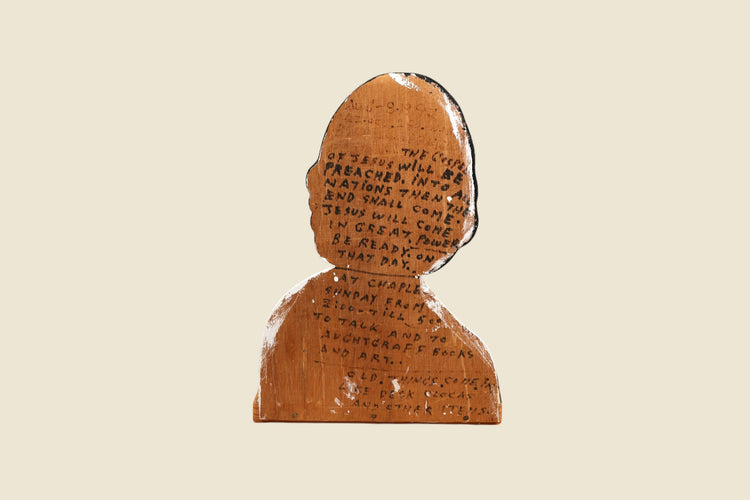 THE GOSPEL
OF JESUS WILL BE
PREACHED. INTO ALL
NATIONS THEN THE
END SHALL COME.
JESUS WILL COME
IN GREAT. POWER
BE READY. ON
THAT DAY.
AT CHAPLE
SUNDAY FROM
TILL 500
TO TALK AND TO
AUHTGRAFF BOOKS
AND ART..
OLD. THINGS. COME
DECK CLOCKS
AND OTHER ITEMS.